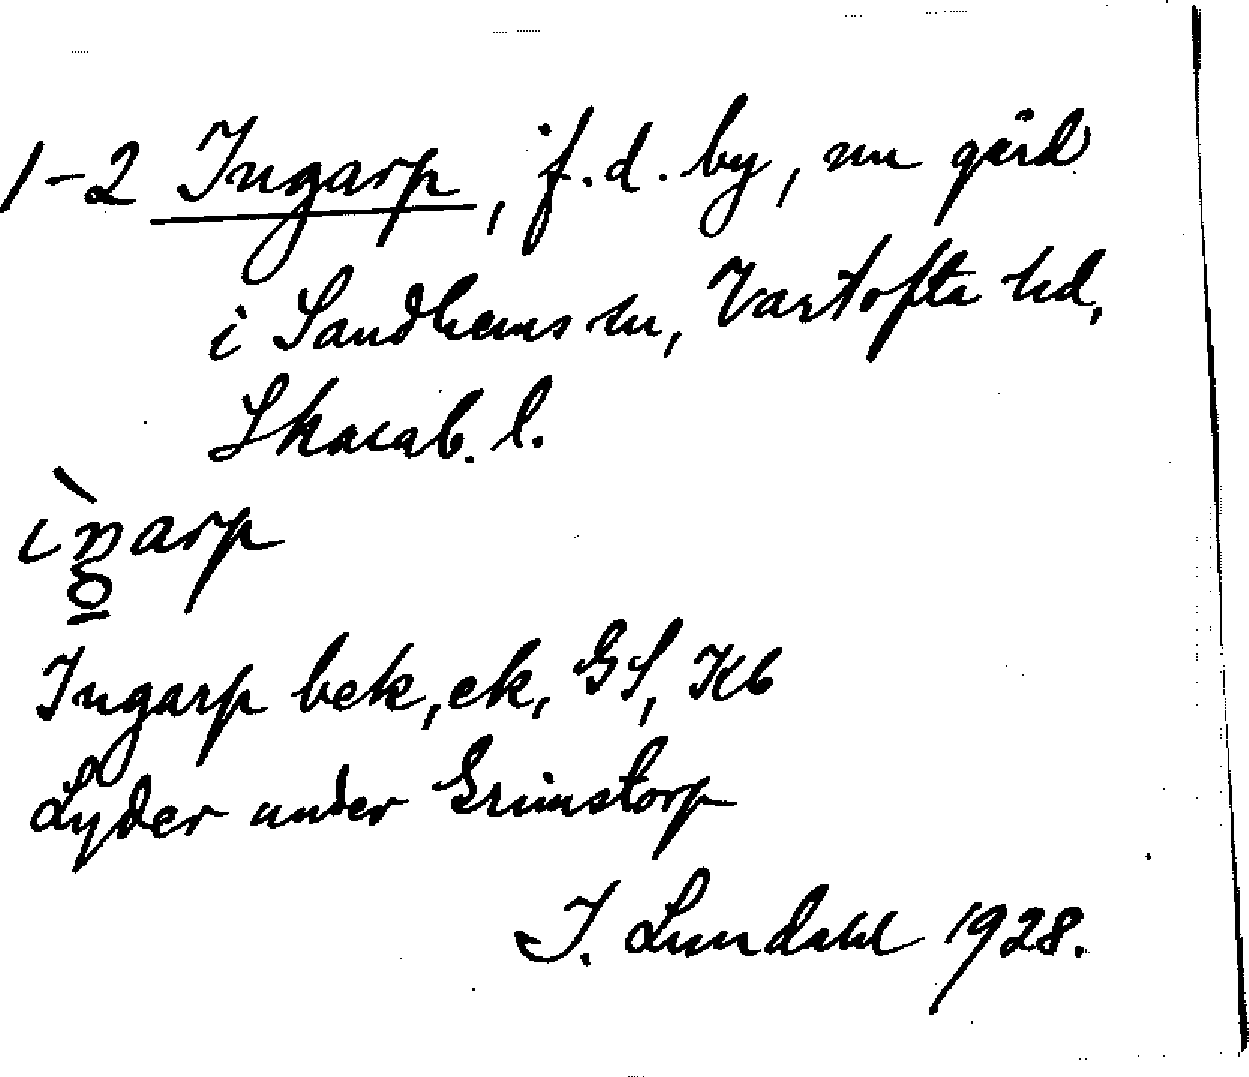 1-2 Ingarp, f.d. by, nu gård
i Sandhems sn, Vartofta hd,
Skarab. l.
ìŋarp
Ingarp bek, ek, GS, Kb
Lyder under Grimstorp
I. Lundahl 1928.